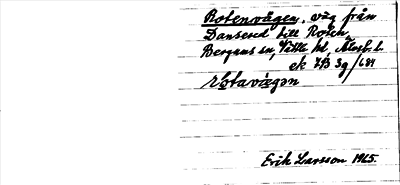 Rotenvägen, väg från
Dansered till Roten,
Bergums sn, Vättle hd, Älvsb. l.
ek 7B 3g/64
Erik Larsson 1965.